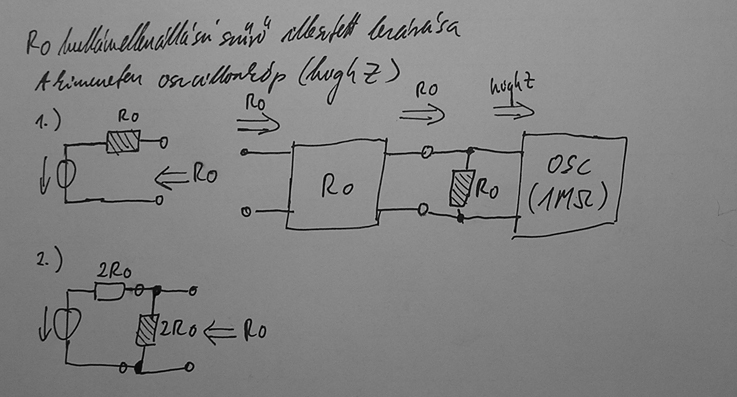 R0 hullámellenállású szűrő illesztett lezárása
A kimeneten oszcilloszkóp (high Z)
1.)
R0
R0
R0
R0
high Z
R0
R0
OSC
(1MΩ)
2.)
2R0
2R0
R0